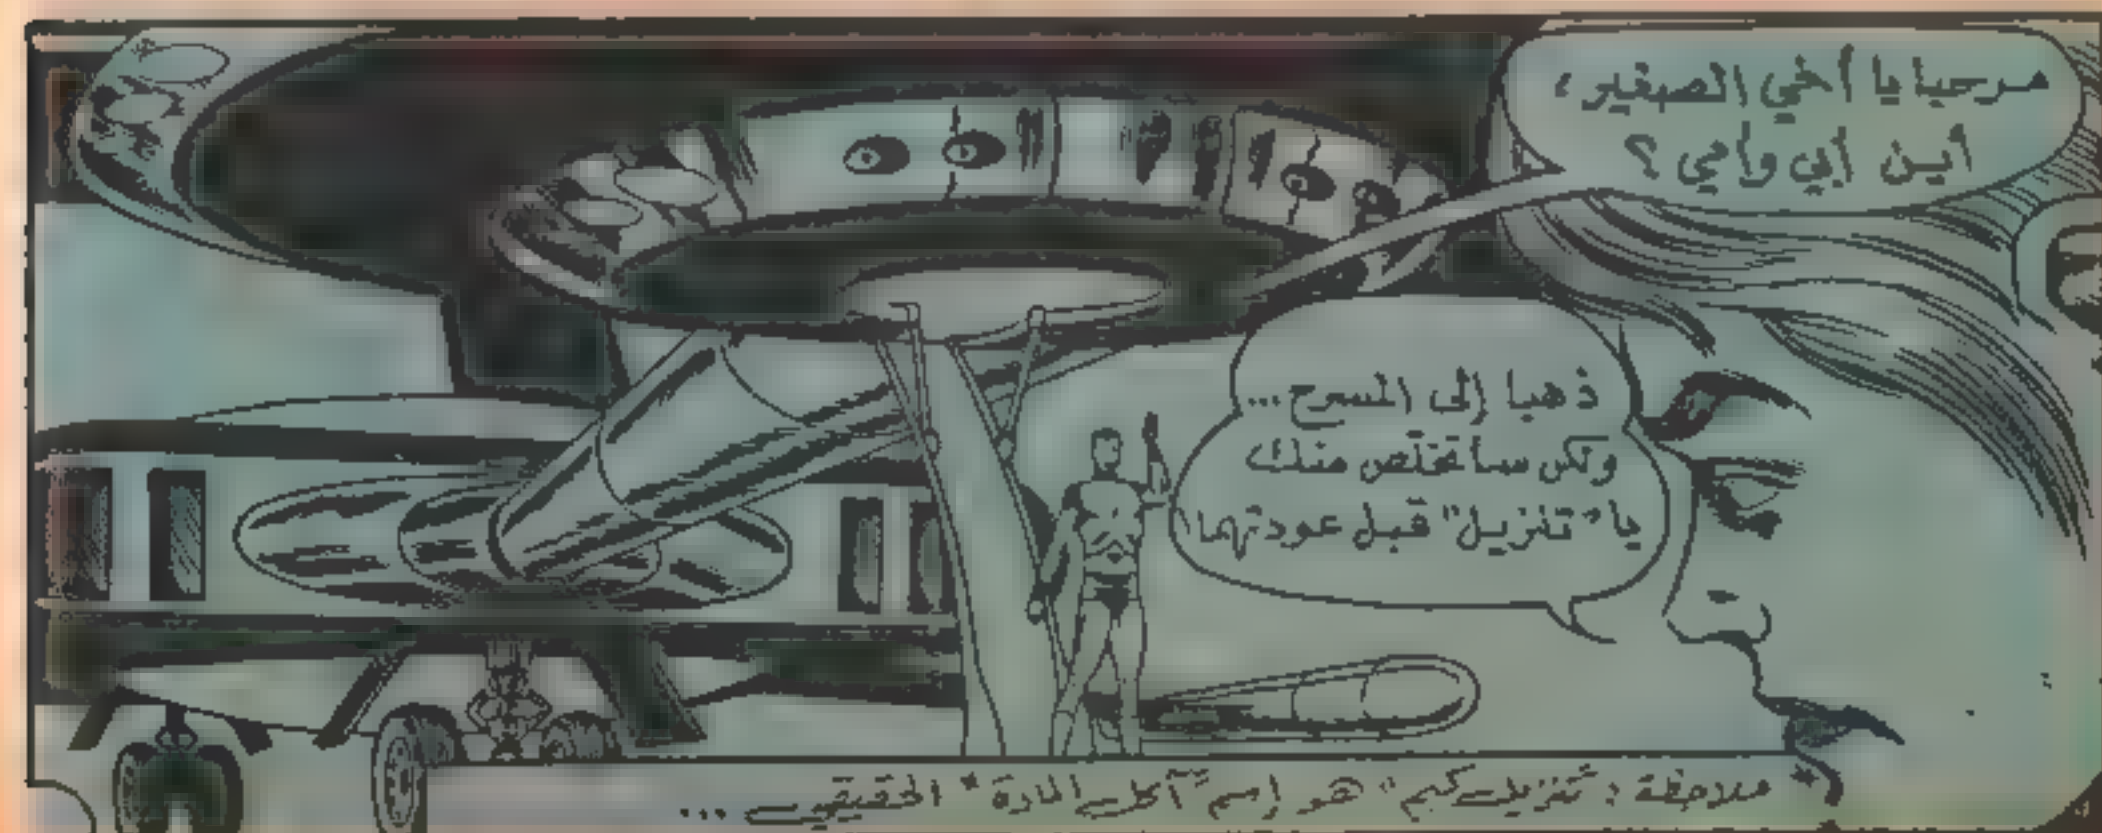 مرحبا يا أخي الصغير،
أين أبي وأمي؟
ذهبا إلى المسرح...
ولكن سأتخلص منك
يا "تنزيل" قبل عودتهما!
* ملاحظة: "تنزيل كيم" هو إسم "آكل المادة" الحقيقي...